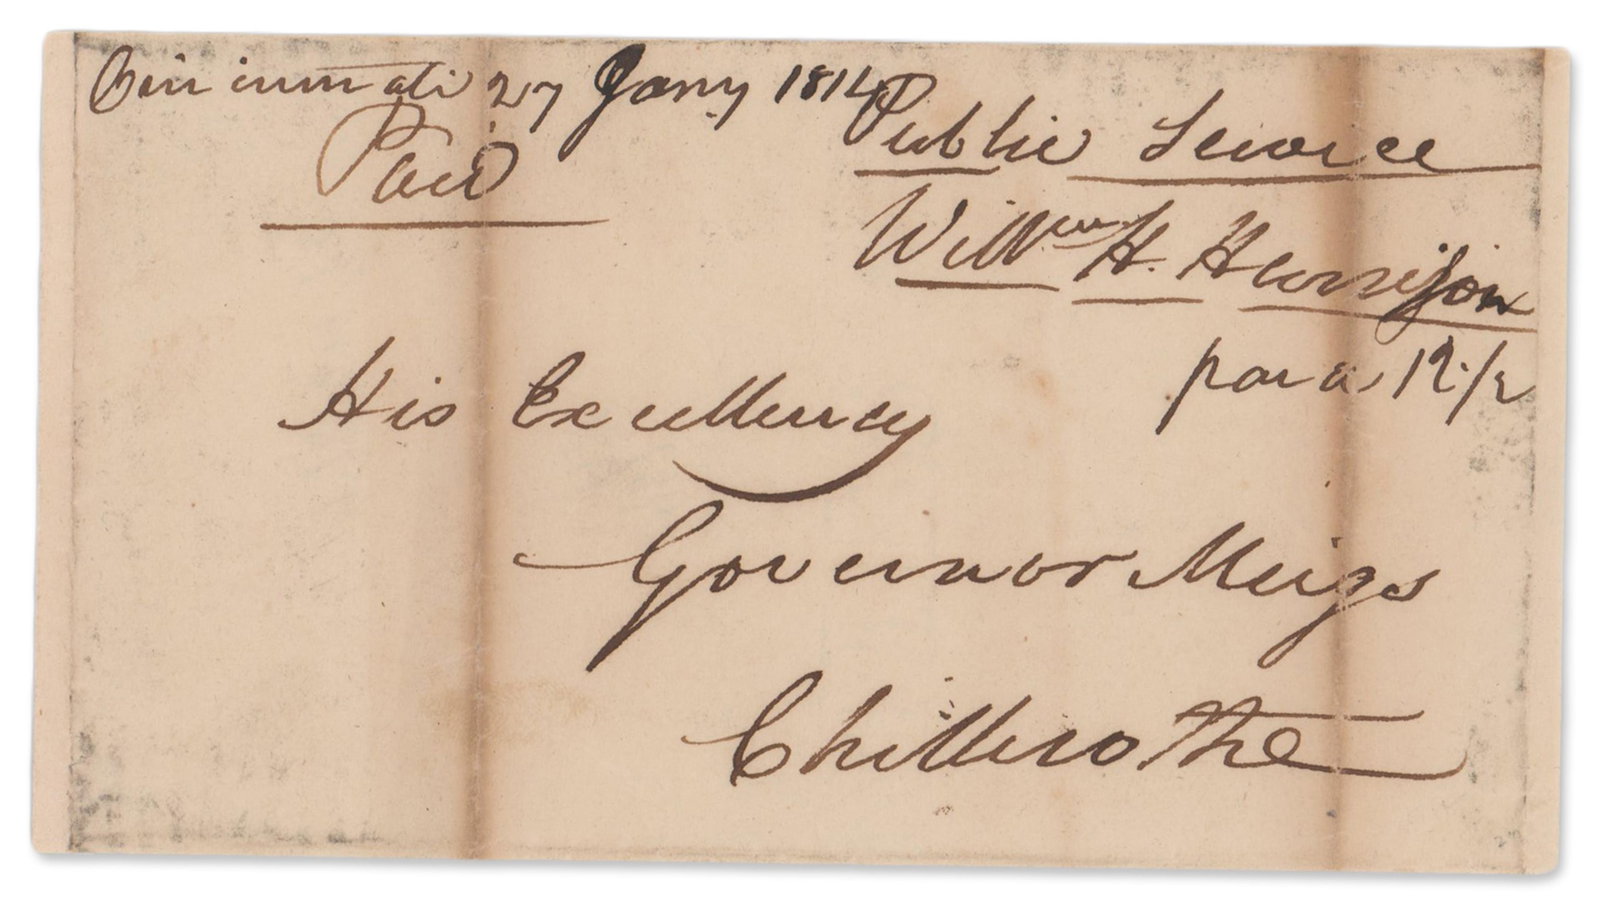 Cincinnati 27 Jany 1814
Paid
Public Service
Willm H. Harrison
paid 12 1/2
His Excellency
Governor Meigs
Chillicothe